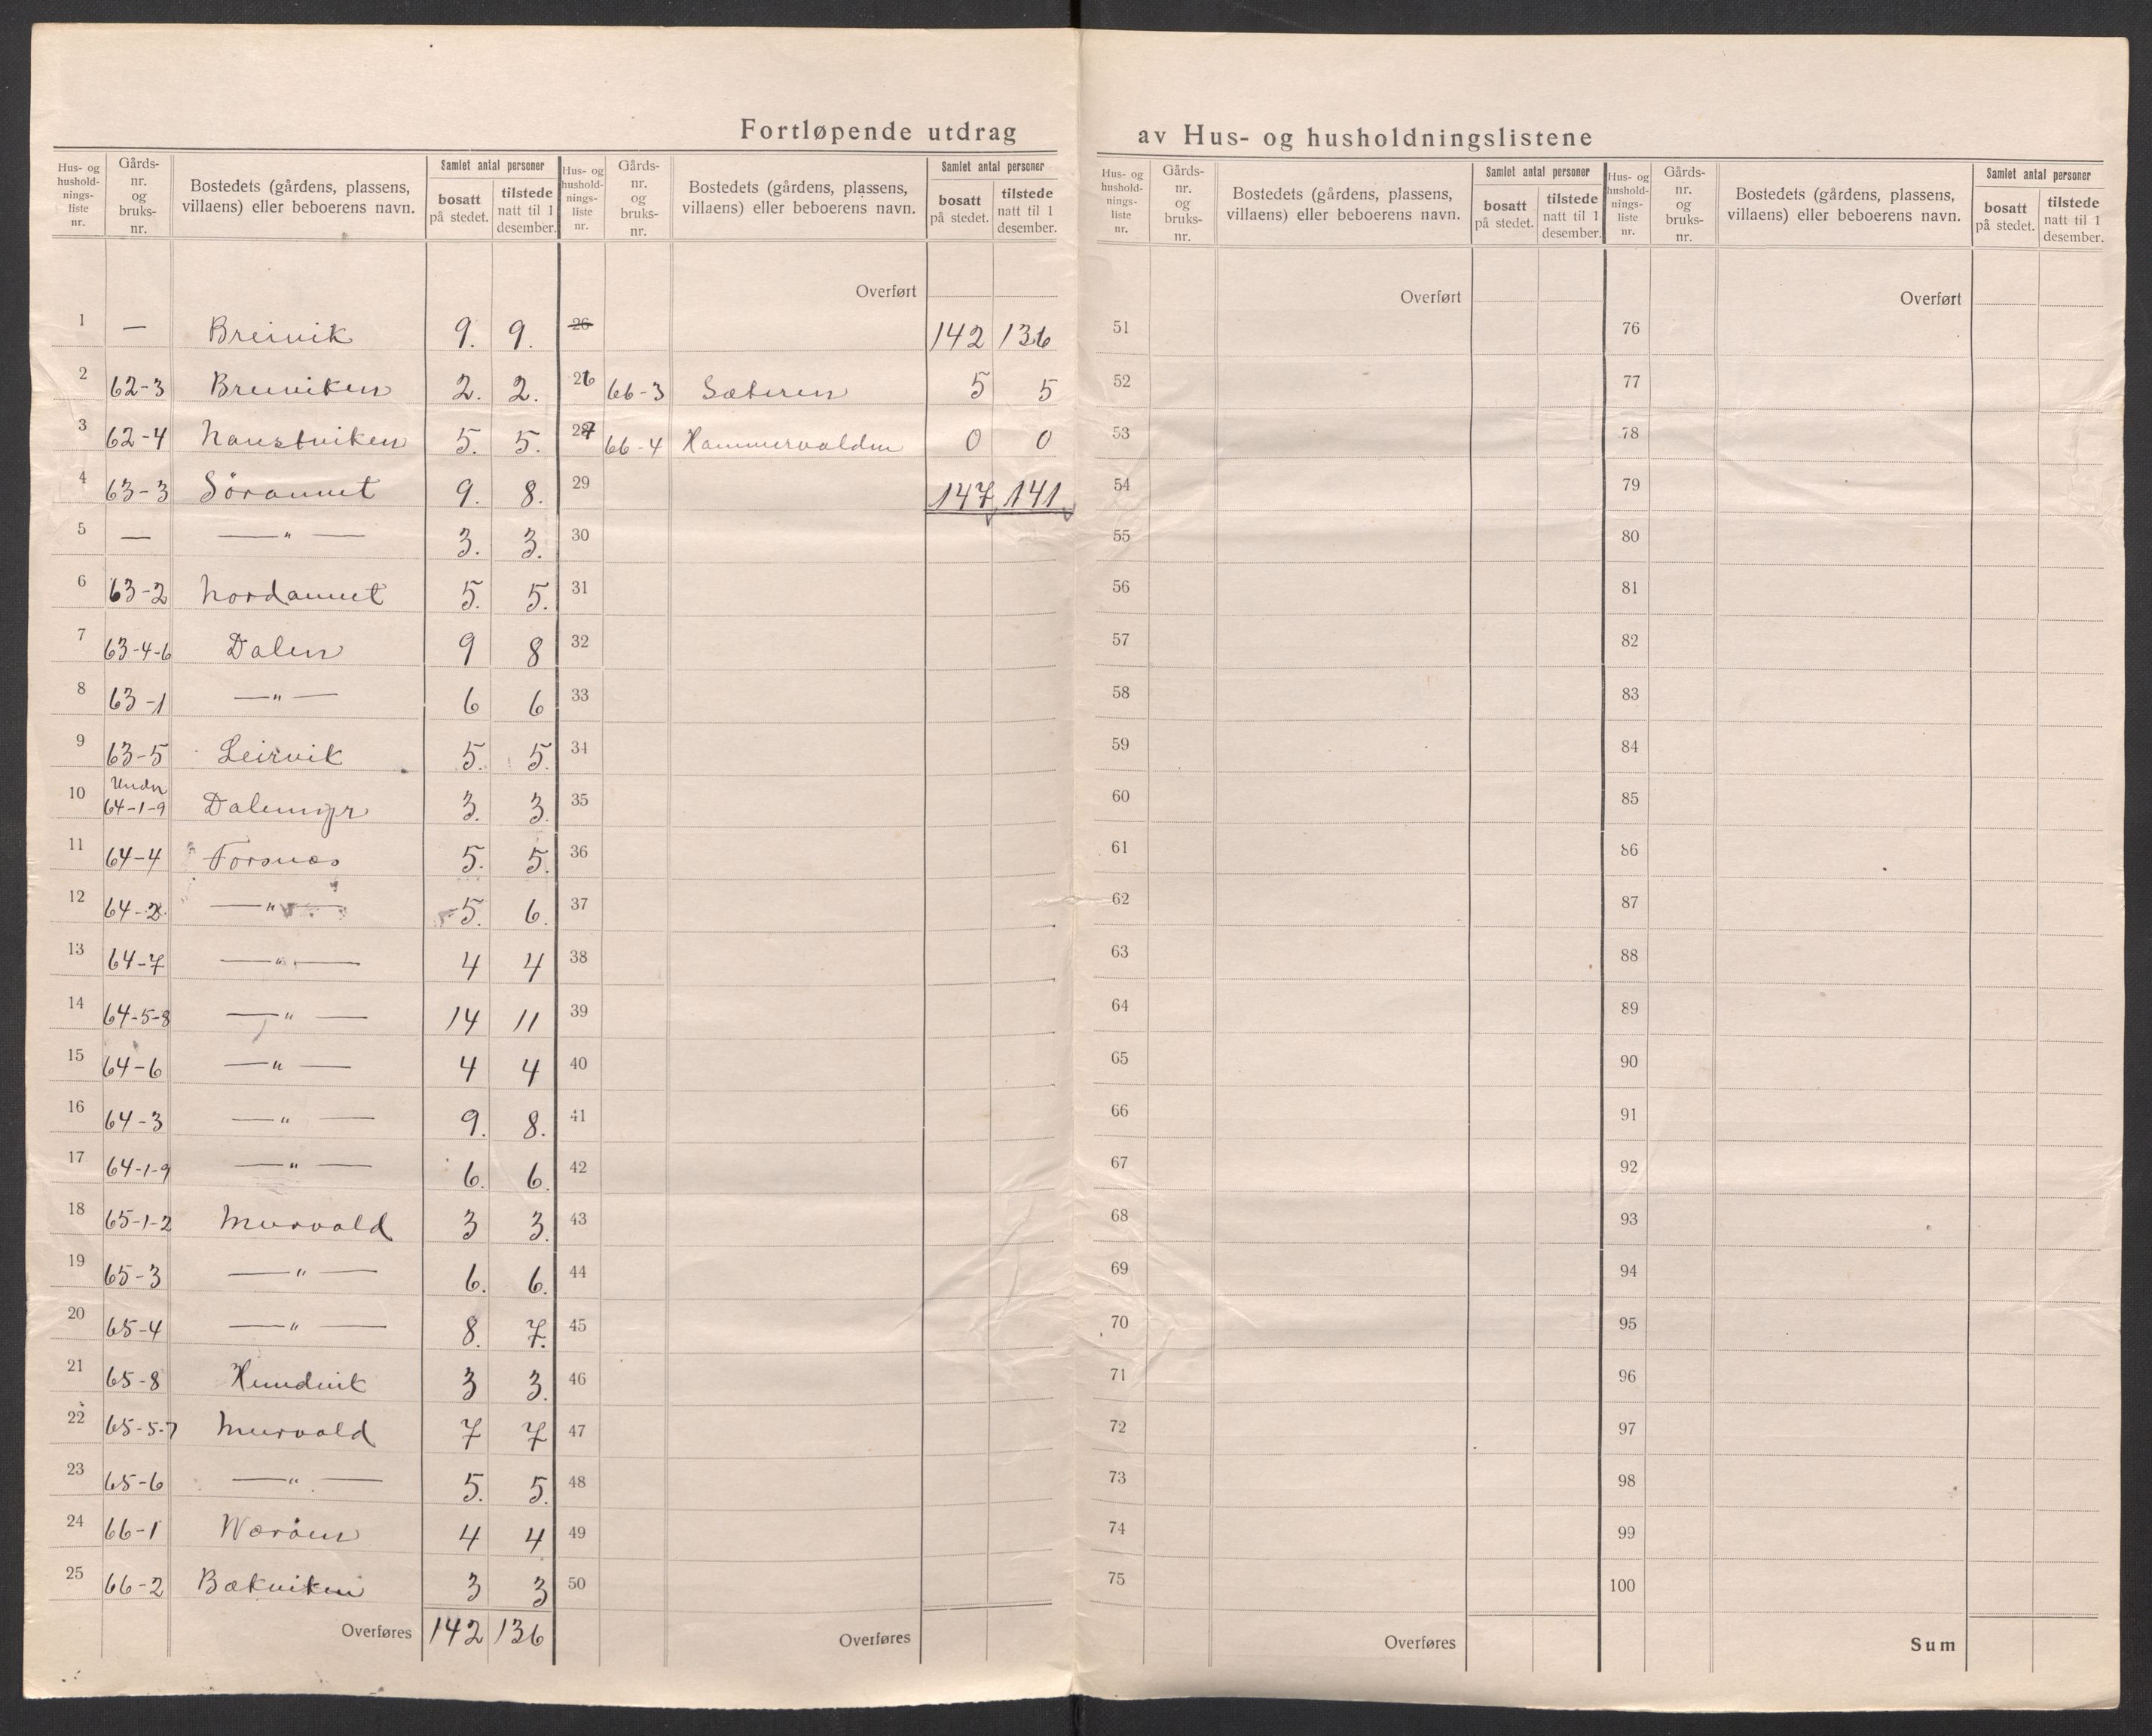 Fortløpende utdrag av Hus- og husholdningslistene
Hus- og husholdningsliste nr. Gårdsnr. og bruksnr. Bostedets (gårdens, plassens, villaens) eller beboerens navn. Samlet antal personer bosatt på stedet. tilstede natt til 1 desember.
Hus- og husholdningsliste nr. Gårdsnr. og bruksnr. Bostedets (gårdens, plassens, villaens) eller beboerens navn. Samlet antal personer bosatt på stedet. tilstede natt til 1 desember.
Hus- og husholdningsliste nr. Gårdsnr. og bruksnr. Bostedets (gårdens, plassens, villaens) eller beboerens navn. Samlet antal personer bosatt på stedet. tilstede natt til 1 desember.
Hus- og husholdningsliste nr. Gårdsnr. og bruksnr. Bostedets (gårdens, plassens, villaens) eller beboerens navn. Samlet antal personer bosatt på stedet. tilstede natt til 1 desember.
1 — Breivik 9. 9.
2 62-3 Breiviken 2. 2.
3 62-4 Naustviken 5. 5.
4 63-3 Söraunet 9. 8.
5 — —"— 3. 3.
6 63-2 Nordaunet 5. 5.
7 63-4-6 Dalen 9 8
8 63-1 —"— 6 6
9 63-5 Leirvik 5. 5.
10 Under 64-1-9 Dalemyr 3. 3.
11 64-4 Forsnes 5. 5.
12 64-2 —"— 5. 6.
13 64-7 —"— 4 4
14 64-5-8 —"— 14 11
15 64-6 —"— 4 4
16 64-3 —"— 9. 8.
17 64-1-9 —"— 6. 6.
18 65-1-2 Murvold 3 3.
19 65-3 —"— 6. 6.
20 65-4 —"— 8. 7.
21 65-8 Hundvik 3 3.
22 65-5-7 Murvold 7 7
23 65-6 —"— 5. 5.
24 66-1 Weröen 4 4
25 66-2 Bækviken 3 3
Overføres 142 136
Overført
26 142 136
26 66-3 Sæteren 5 5
27 66-4 Hammervolden 0 0
29 147 141
30
31
32
33
34
35
36
37
38
39
40
41
42
43
44
45
46
47
48
49
50
Overføres
Overført
51
52
53
54
55
56
57
58
59
60
61
62
63
64
65
66
67
68
69
70
71
72
73
74
75
Overføres
Overført
76
77
78
79
80
81
82
83
84
85
86
87
88
89
90
91
92
93
94
95
96
97
98
99
100
Sum